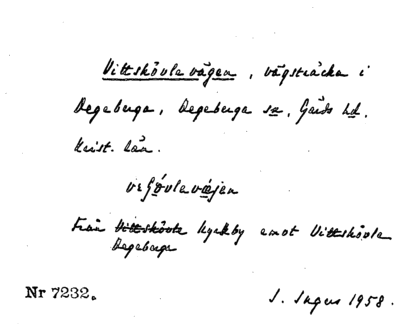 Vittskövlevägen, vägsträcka i
Degeberga, Degeberga sn, Gärds hd.
Krist. län.
Från Vittskövle kyrkby emot Vittskövle
Degeberga
Nr 7232.
S. Ingers 1958.